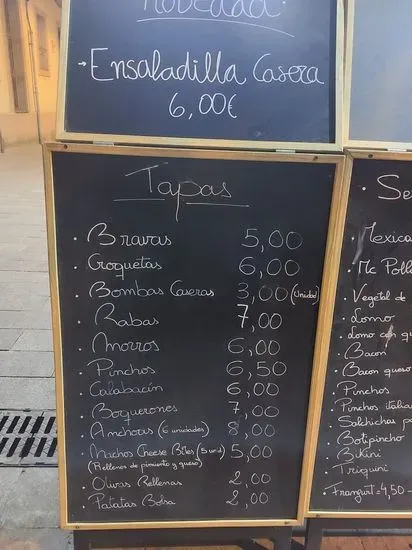 Novedad:
→Ensaladilla Casera
6,00€
Tapas
· Bravas 5,00
· Croquetas 6,00
· Bombas Caseras 3,00 (unidad)
· Rabas 7,00
· Morros 6,00
· Pinchos 6,50
· Calabacín 6,00
· Boquerones 7,00
· Anchoas (6 unidades) 8,00
· Nachos Cheese Bites (5 unid) 5,00
(Rellenos de pimiento y queso)
· Olivas Rellenas 2,00
· Patatas Bolsa 2,00
· Mexica
· Mc Poll
· Vegetal de
· Lomo
· Lomo con qu
· Bacon
· Bacon queso
· Pinchos
· Pinchos italia
· Salchichas p
· Botipincho
· Bikini
· Triquini
Frankfurt=4,50-